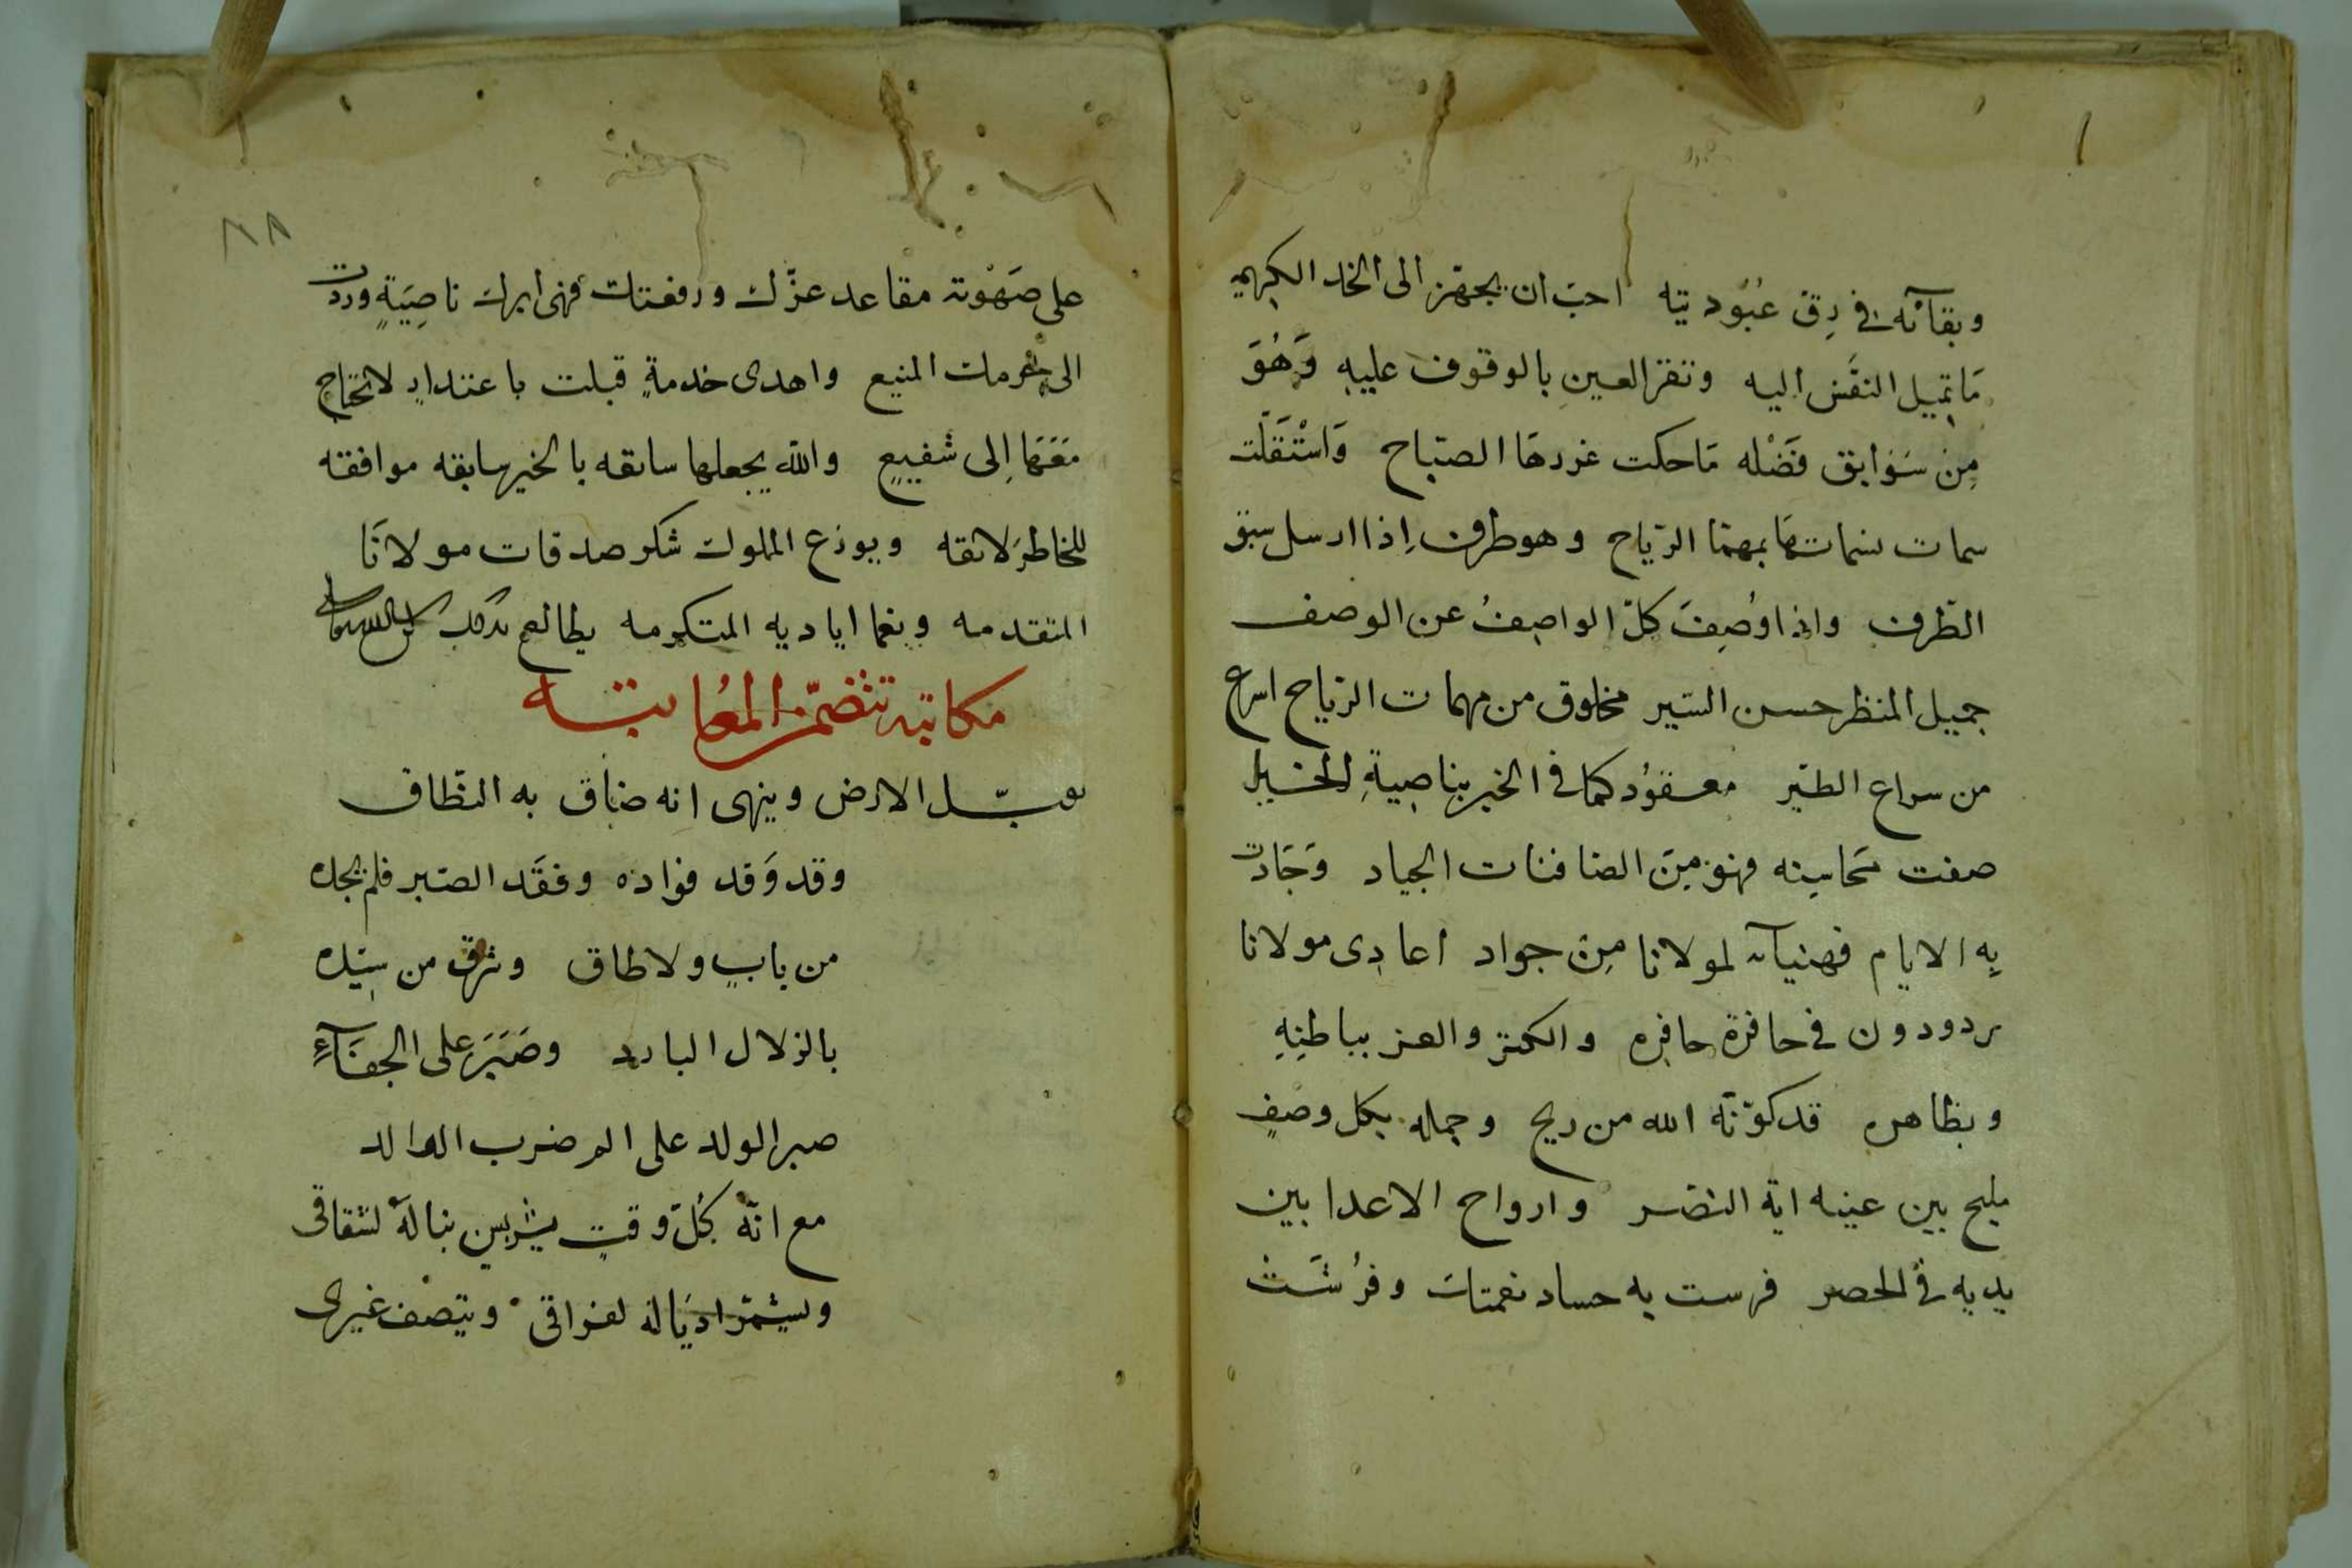 وبقائه في رق عبوديته احب ان يجهز الى الخد الكريم
مَا تميل النفس اليه وتقر العين بالوقوف عليه وَهُوَ
مِن سَوَابق فَضْله مَا حكت غررهَا الصبَاح وَاسْتَقَلَّت
سمات نسماتهَا بمهمّا الرّياح وهو طرف اِذا ارسل سبق
الطّرف واذا وُصِفَ كلّ الواصِفُ عن الوصف
جميل المنظر حسن السّير مخلوق من مهمات الرّياح اسرع
من سراع الطّير معقوُد كما في الخبر بناصِيةِ الخيل
صفت محَاسِنه فهو مِنَ الصافنات الجياد وَجَادَت
بِه الايام فهنيآ لمولانا مِن جواد اعادِى مولانا
مردودون في حافرة حافره والكنز والعز بباطنِهِ
وبظاهره قد كوّنَه الله من ريح وجمله بكل وصفٍ
مليح بين عينيه اية النصر وارواح الاعدا بين
يديه في الحصر فرست به حساد نعمتك وفرُشَت
٨٨
على صَهْوته مقاعد عزّك ورفعتك فهى ابرك ناصِيَةٍ وردت
الى المنيع واهدى خدمةٍ قبلت باعتدادٍ لا تحتاج
مَعَهَا اِلى شفيعٍ والله يجعلها سابقه بالخير سابقه موافقه
للخاطر لائقه ويوزع المملوك شكر صدقات مولانَا
المتقدمه ونعما اياديه المتكرمه يطالع بذلك
مكاتبه تتضمّن المعُاتبه
يقبّل الارض وينهى انه ضاق به النطاق
وقد وَقد فؤاده وفقَد الصبر فلم يجده
من بابٍ ولا طاق وشرق من سيّده
بالزلال البارد وصَبَرَ على الجفَآءِ
صبر الولد على الم ضرب الوالد
مع انّه كُلّ وقتٍ يريش نبالهُ لشقاقى
ويشمّر اذيَاله لفراقى ويتصف غيرى